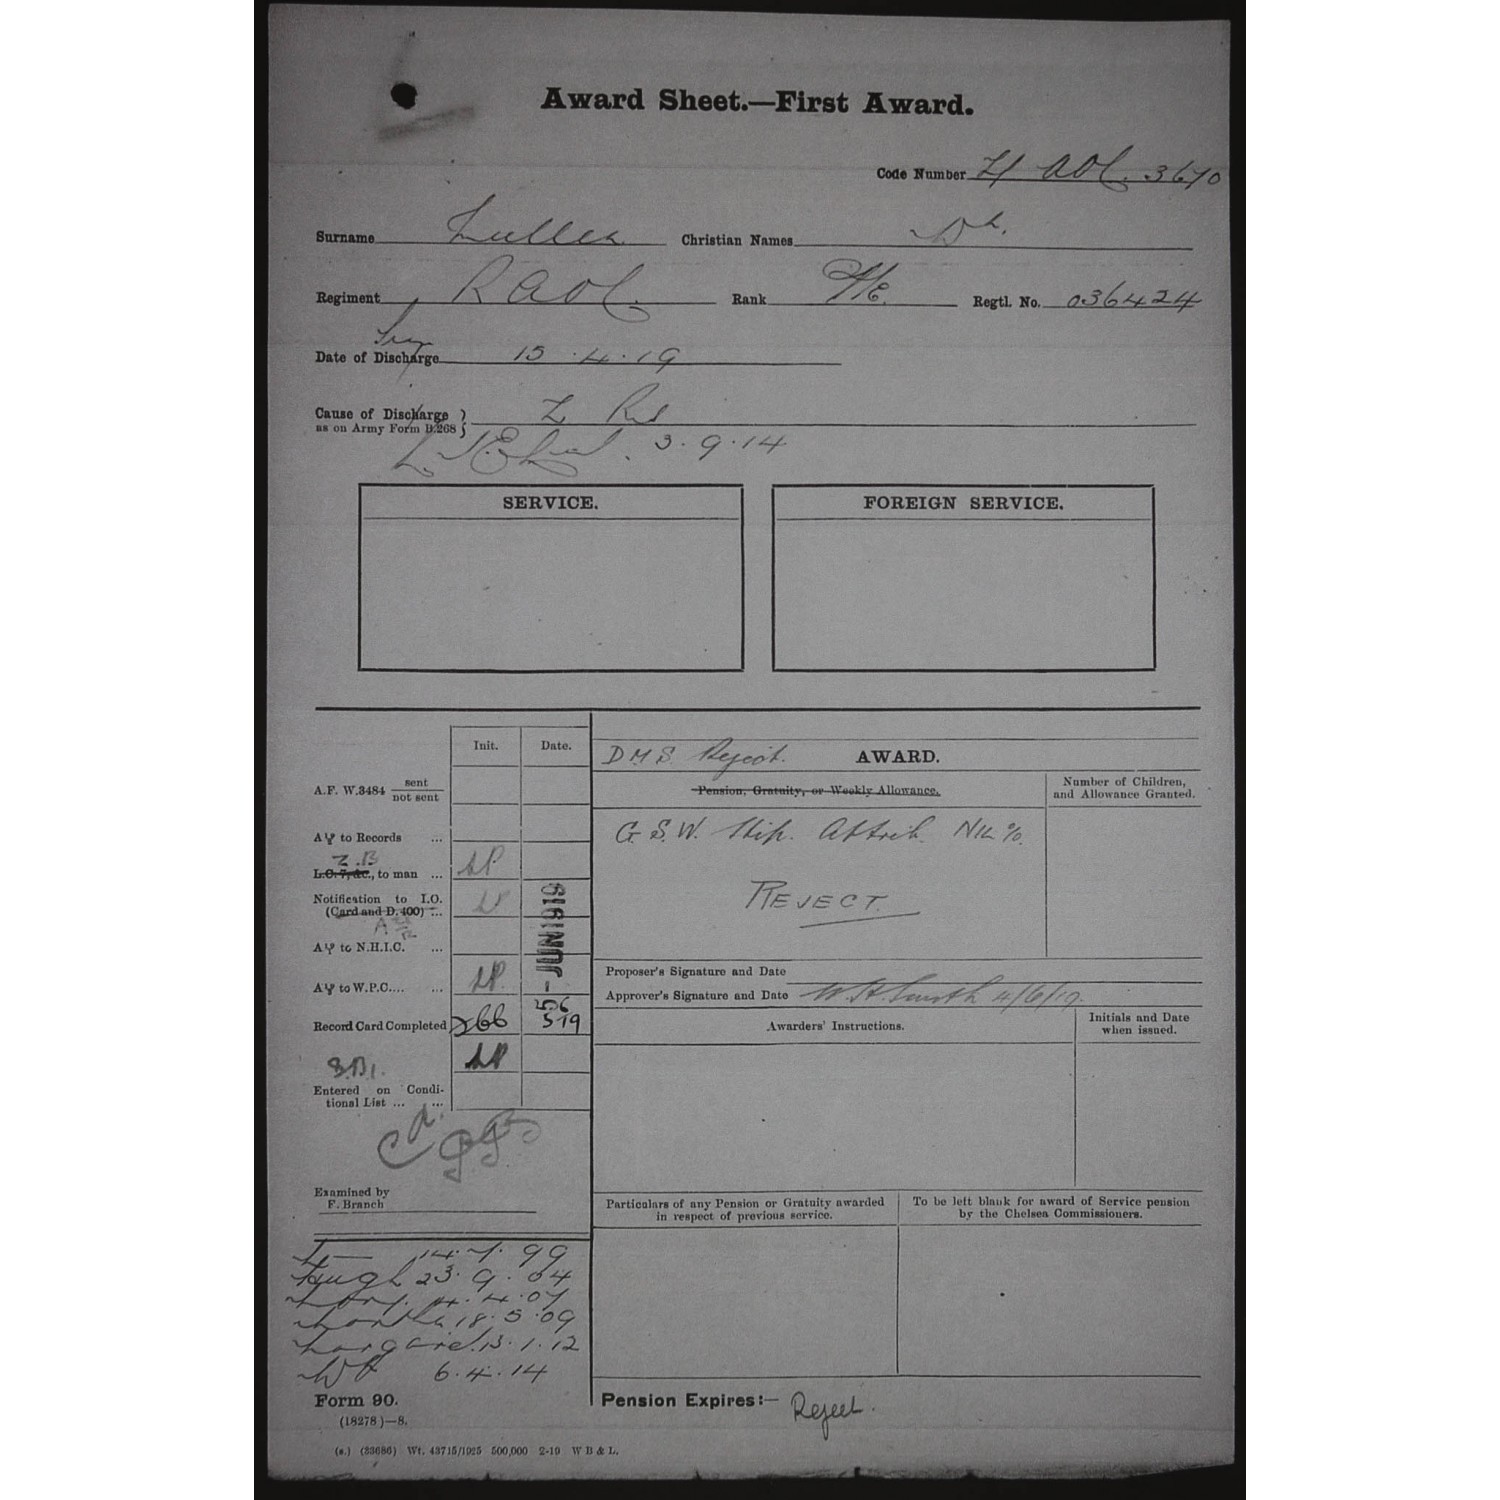 Award Sheet.—First Award.
Code Number 3670
Surname Christian Names Wm.
Regiment RAOC. Rank Pte. Regtl. No. 036424
Date of Discharge 15.4.19
Cause of Discharge
as on Army Form B.268 Z Res
3.9.14
SERVICE. FOREIGN SERVICE.
Init. Date.
DMS Reject. AWARD.
A.F. W.3484 sent
not sent
Pension, Gratuity, or Weekly Allowance.
Number of Children,
and Allowance Granted.
G.S.W. Hip. Attrib. Nil %.
REJECT.
A Y to Records ...
Z.B
L.O. 7, &c., to man ...
Notification to I.O.
(Card and D. 400) ...
A Y to N.H.I.C. ...
A Y to W.P.C.... ...
5-JUN1919
Record Card Completed
Entered on Condi-
tional List ... ...
Proposer's Signature and Date
Approver's Signature and Date W.H. Smith 4/6/19.
Awarders' Instructions. Initials and Date
when issued.
Examined by
F. Branch
Particulars of any Pension or Gratuity awarded
in respect of previous service.
To be left blank for award of Service pension
by the Chelsea Commissioners.
14.7.99
Hugh 23.9.04
Mary. 4.4.07
Martha 18.5.09
Margaret 13.1.12
Wm 6.4.14
Form 90.
(18278)—8.
Pension Expires:— Reject.
(s.) (33686) Wt. 43715/1925 500,000 2-19 W B & L.